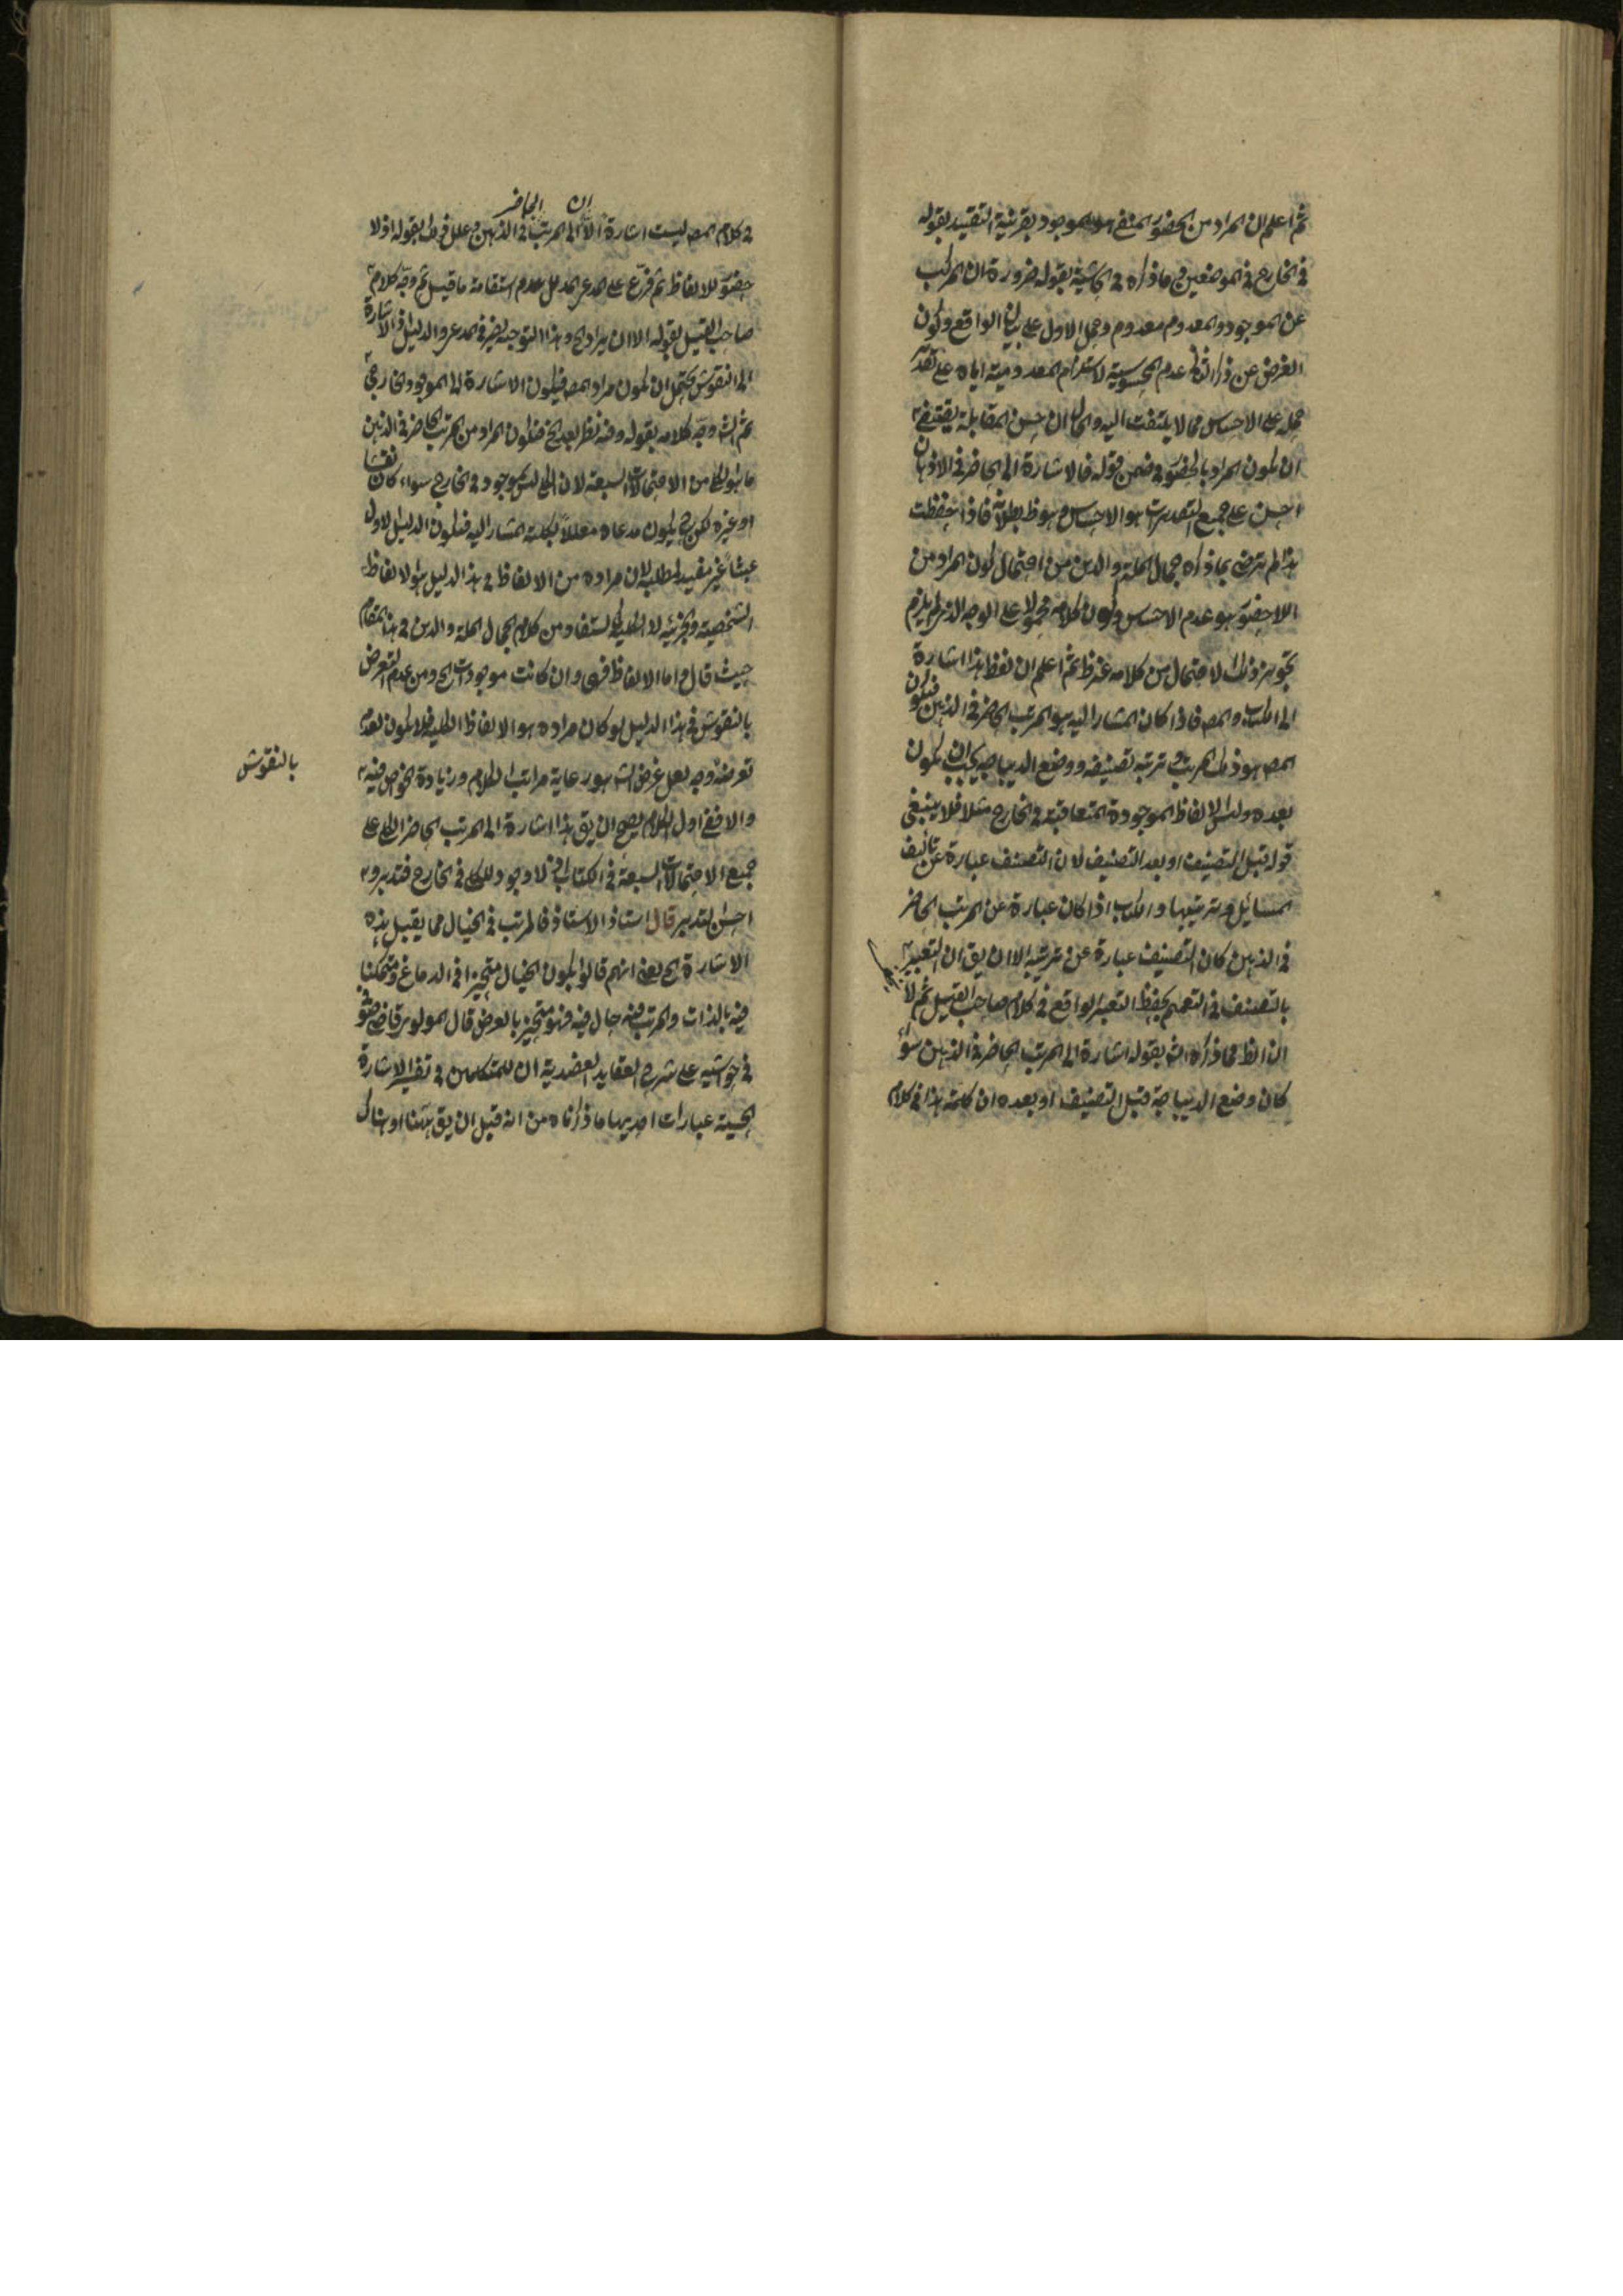 ثم اعلم ان المراد من الحضور المنفي هو الموجود بقرينة التقييد بقوله
في الخارج في الموضعين مع ما ذكره في الحاشية بقوله ضرورة ان المركب
عن الموجود والمعدوم معدوم وحمل الاول على بيان الواقع وكون
الغرض عن ذكر الثاني عدم المحسوسية لاستلزام المعدومية اياه على تقدير
حمله على الاحساس مما لا يلتفت اليه والحال ان حسن المقابلة يقتضي
ان يكون المراد بالحضور في ضمن قوله فالاشارة الى الحاضر في الاذهان
احسن على جميع التقديرات هو الاحساس وهو ظ بطلانه فاذا حفظت
هذا لم ترض بما ذكره جمال الملة والدين من احتمال كون المراد من
اللاحضور هو عدم الاحساس وكون كلامه محمولا على الوجه الذي لم يلزم
تجويز ذلك الاحتمال من كلامه غير ظ ثم اعلم ان لفظ هذا اشارة
الى الكتاب والمص فاذا كان المشار اليه هو المرتب الحاضر في الذهن فيكون
المص هو ذلك المرتب ترتبه تصنيفه ووضع الديباجه يجب ان يكون
بعده وليس الالفاظ الموجودة المتعاقبة في الخارج مثلا فلا ينبغي
قوله قبل التصنيف او بعد التصنيف لان التصنيف عبارة عن تأليف
المسائل وترتيبها والكتاب اذا كان عبارة عن المرتب الحاضر
في الذهن كان التصنيف عبارة عن ترتيبه الا ان يق ان التعبير
بالتصنيف في التعميم لحفظ التعبير الواقع في كلام صاحب القيل ثم لا
ان الظ مما ذكره الش بقوله اشارة الى المرتب الحاضر في الذهن سواء
كان وضع الديباجة قبل التصنيف او بعده ان كلمة هذا في كلام
ان الحاضر
في كلام المص ليست اشارة الا الى المرتب في الذهن وعلل ذلك بقوله اذ لا
حضور للالفاظ ثم فرع على المدعى المدلل عدم استقامة ما قيل ثم وجه كلام
صاحب القيل بقوله الا ان يراد الخ وهذا التوجيه يضر في المدعى والدليل اذ الاشارة
الى النقوش يحتمل ان يكون مراد المص فيكون الاشارة الى الموجود الخارجي
ثم الش وجه كلامه بقوله وفيه نظر بعد الخ فيكون المراد من المرتب الحاضر في الذهن
ما هو الكلي من الاحتمالات السبعة لان الكلي ليس بموجود في الخارج سواء كان نقشا
او غيره لكن ح يكون مدعاه معللا بكلية المشار اليه فيكون الدليل الاول
عبثا غير مفيد لمطلبه لان مراده من الالفاظ في هذا الدليل هو الالفاظ
الشخصية والجزئية لا الكلية كما يستفاد من كلام جمال الملة والدين في هذا المقام
حيث قال واما الالفاظ فهي وان كانت موجودات الخ ومن عدم التعرض
بالنقوش في هذا الدليل لو كان مراده هو الالفاظ الكلية فلا يكون لعدم
تعرضه وجه لعل غرض الش هو رعاية مراتب الكلام وزيادة الخوض فيه
والا ففي اول الكلام يصح ان يق هذا اشارة الى المرتب الحاضر الكلي على
جميع الاحتمالات السبعة في الكتاب اذ لا وجود للكلي في الخارج فتدبر و
احسن التدبير قال استاذ الاستاذ فالمرتب في الخيال مما يقبل هذه
الاشارة الخ يعني انهم قالوا بكون الخيال متحيزا في الدماغ ومتمكنا
فيه بالذات والمرتب فيه حال فيه فهو متحيز بالعرض قال المولوي قاضي
في حواشيه على شرح العقايد العضدية ان للمتكلمين في تفسير الاشارة
الحسية عبارات احديها ما ذكرناه من انه قبل ان يق ههنا او هناك
بالنقوش